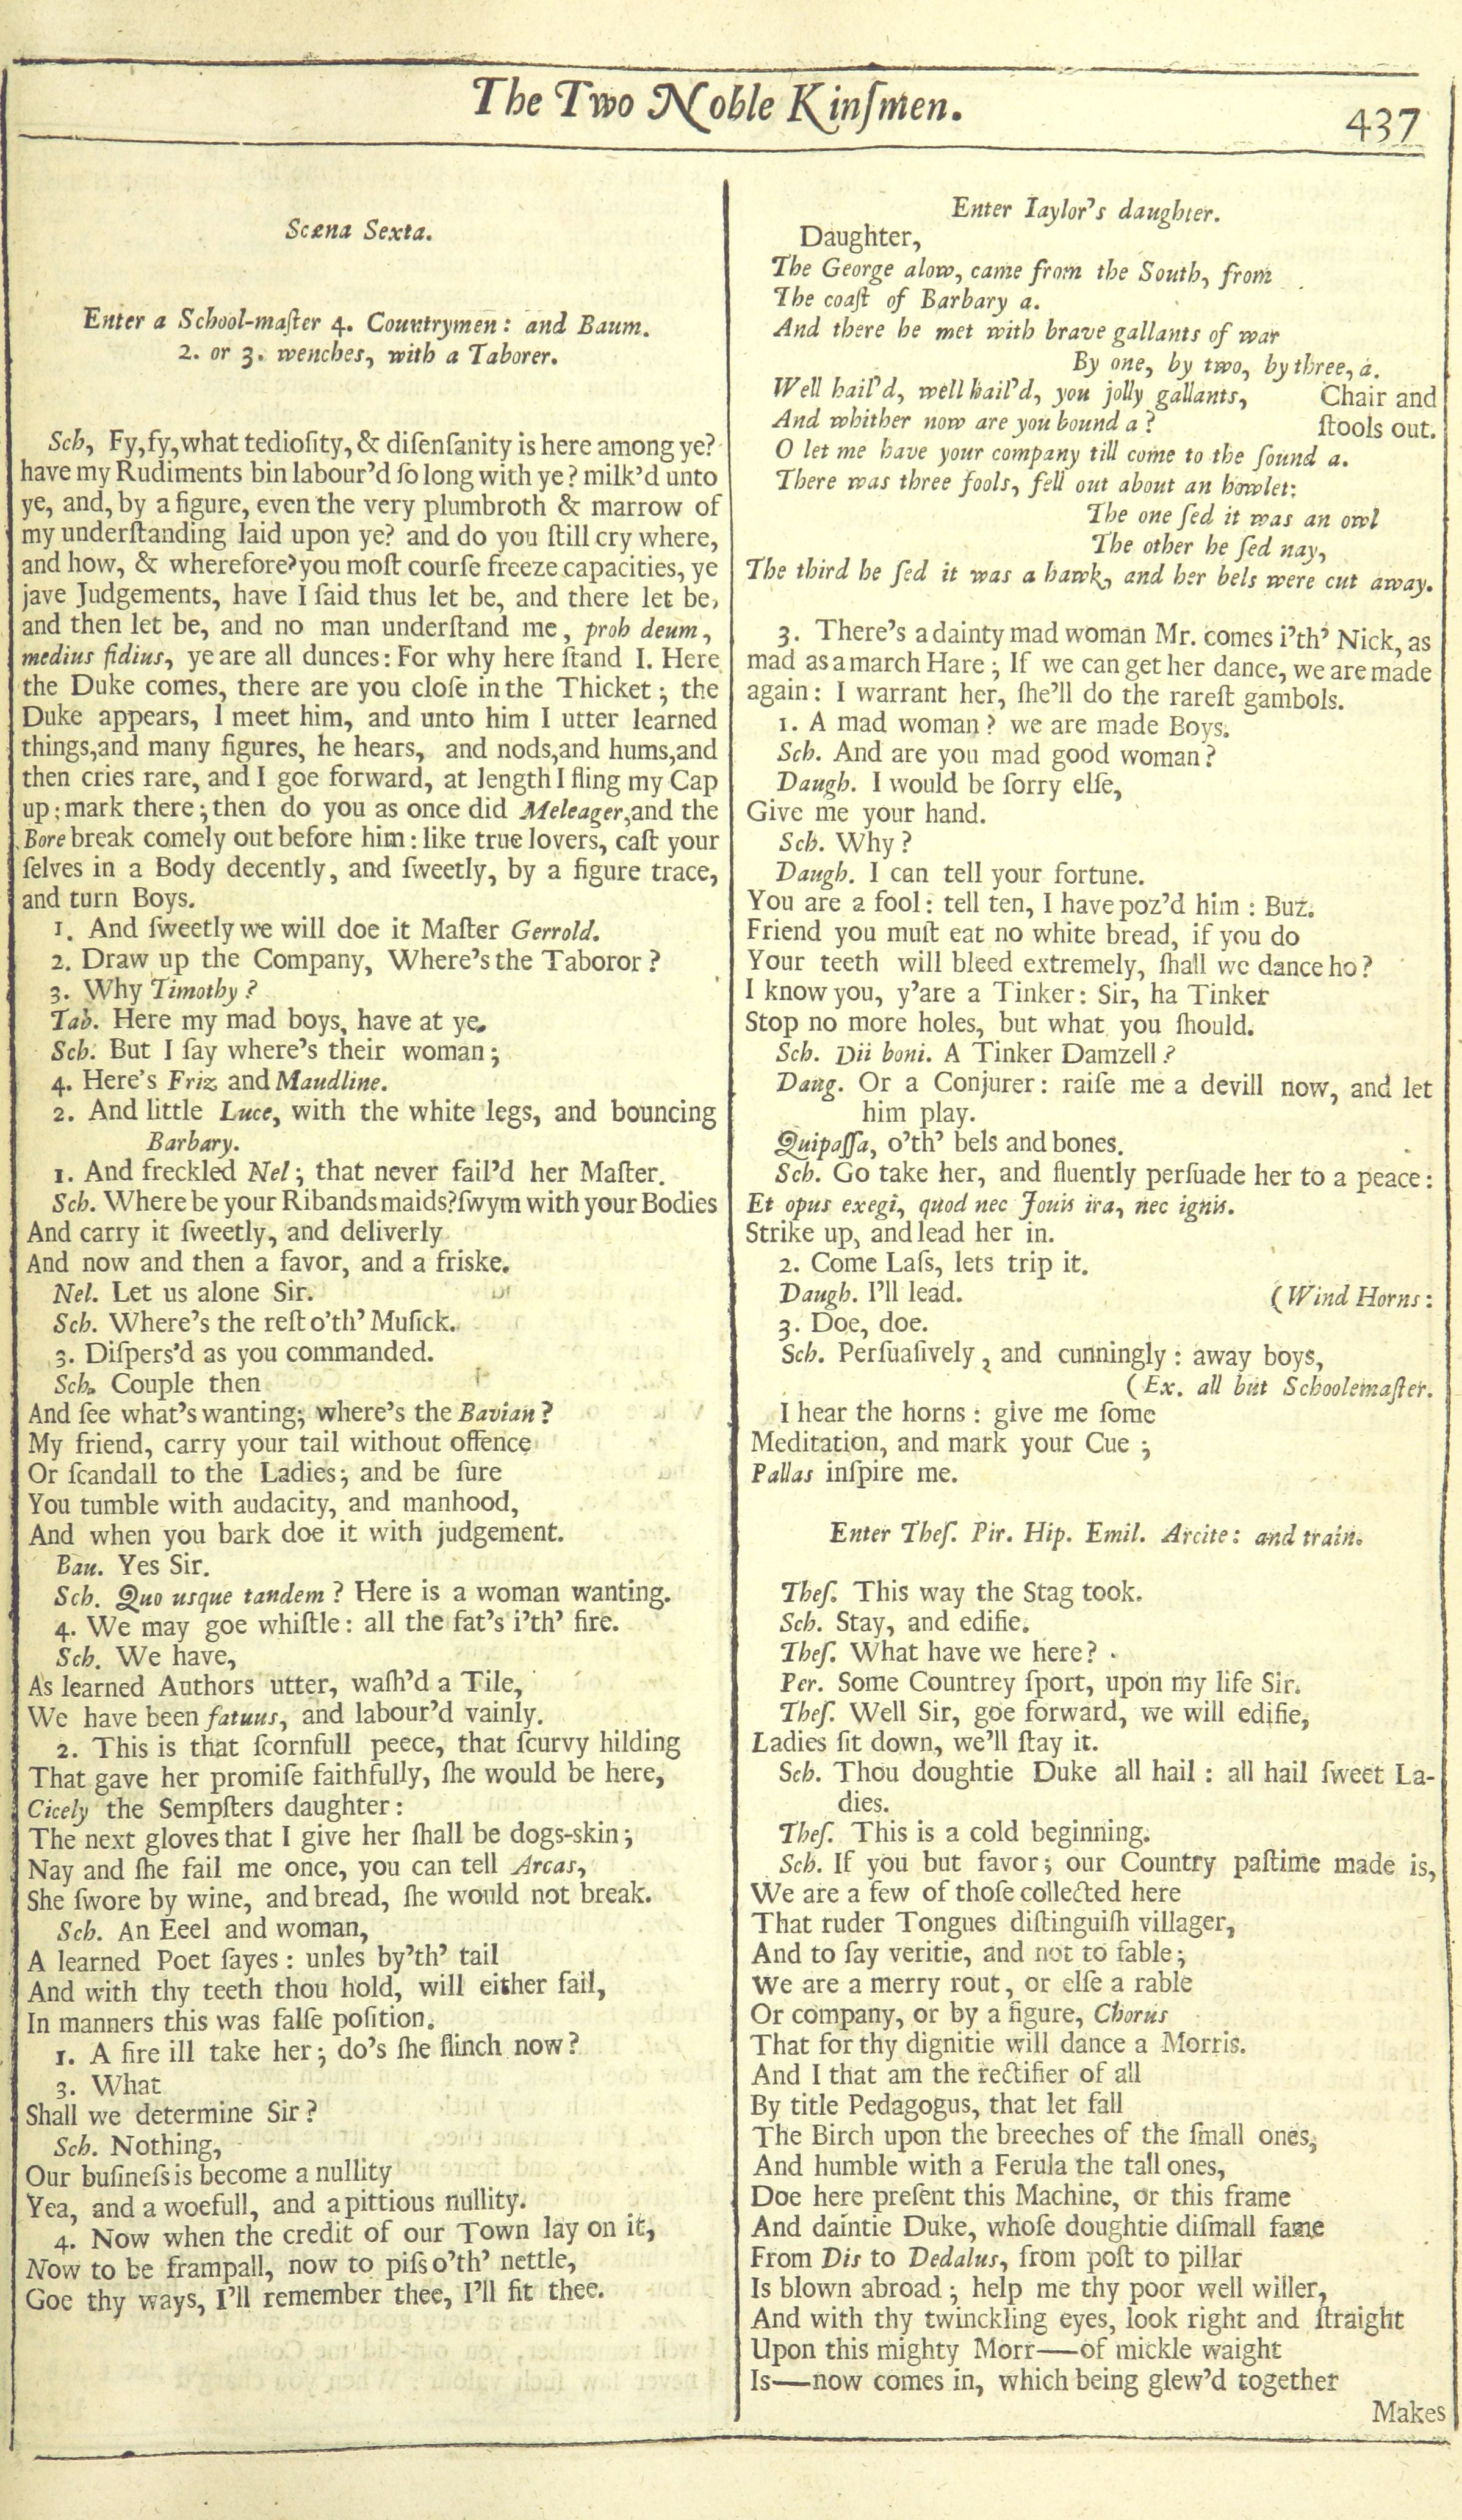 The Two Noble Kinſmen.
437
Scæna Sexta.
Enter a School-maſter 4. Countrymen: and Baum.
2. or 3. wenches, with a Taborer.
Sch, Fy,fy,what tedioſity, & diſenſanity is here among ye?
have my Rudiments bin labour'd ſo long with ye? milk'd unto
ye, and, by a figure, even the very plumbroth & marrow of
my underſtanding laid upon ye? and do you ſtill cry where,
and how, & wherefore? you moſt courſe freeze capacities, ye
jave Judgements, have I ſaid thus let be, and there let be,
and then let be, and no man underſtand me, proh deum,
medius fidius, ye are all dunces: For why here ſtand I. Here
the Duke comes, there are you cloſe in the Thicket; the
Duke appears, I meet him, and unto him I utter learned
things,and many figures, he hears, and nods,and hums,and
then cries rare, and I goe forward, at length I fling my Cap
up; mark there; then do you as once did Meleager,and the
Bore break comely out before him: like true lovers, caſt your
ſelves in a Body decently, and ſweetly, by a figure trace,
and turn Boys.
1. And ſweetly we will doe it Maſter Gerrold.
2. Draw up the Company, Where's the Taboror?
3. Why Timothy?
Tab. Here my mad boys, have at ye.
Sch. But I ſay where's their woman;
4. Here's Friz and Maudline.
2. And little Luce, with the white legs, and bouncing
Barbary.
1. And freckled Nel; that never fail'd her Maſter.
Sch. Where be your Ribands maids?ſwym with your Bodies
And carry it ſweetly, and deliverly
And now and then a favor, and a friske.
Nel. Let us alone Sir.
Sch. Where's the reſt o'th' Muſick.
3. Diſpers'd as you commanded.
Sch. Couple then
And ſee what's wanting; where's the Bavian?
My friend, carry your tail without offence
Or ſcandall to the Ladies; and be ſure
You tumble with audacity, and manhood,
And when you bark doe it with judgement.
Bau. Yes Sir.
Sch. Quo usque tandem? Here is a woman wanting.
4. We may goe whiſtle: all the fat's i'th' fire.
Sch. We have,
As learned Authors utter, waſh'd a Tile,
We have been fatuus, and labour'd vainly.
2. This is that ſcornfull peece, that ſcurvy hilding
That gave her promiſe faithfully, ſhe would be here,
Cicely the Sempſters daughter:
The next gloves that I give her ſhall be dogs-skin;
Nay and ſhe fail me once, you can tell Arcas,
She ſwore by wine, and bread, ſhe would not break.
Sch. An Eeel and woman,
A learned Poet ſayes: unles by'th' tail
And with thy teeth thou hold, will either fail,
In manners this was falſe poſition.
1. A fire ill take her; do's ſhe flinch now?
3. What
Shall we determine Sir?
Sch. Nothing,
Our buſineſs is become a nullity
Yea, and a woefull, and a pittious nullity.
4. Now when the credit of our Town lay on it,
Now to be frampall, now to piſs o'th' nettle,
Goe thy ways, I'll remember thee, I'll fit thee.
Enter Iaylor's daughter.
Daughter,
The George alow, came from the South, from
The coaſt of Barbary a.
And there he met with brave gallants of war
By one, by two, by three, a.
Well hail'd, well hail'd, you jolly gallants, Chair and
And whither now are you bound a? ſtools out.
O let me have your company till come to the ſound a.
There was three fools, fell out about an howlet:
The one ſed it was an owl
The other he ſed nay,
The third he ſed it was a hawk, and her bels were cut away.
3. There's a dainty mad woman Mr. comes i'th' Nick, as
mad as a march Hare; If we can get her dance, we are made
again: I warrant her, ſhe'll do the rareſt gambols.
1. A mad woman? we are made Boys.
Sch. And are you mad good woman?
Daugh. I would be ſorry elſe,
Give me your hand.
Sch. Why?
Daugh. I can tell your fortune.
You are a fool: tell ten, I have poz'd him: Buz.
Friend you muſt eat no white bread, if you do
Your teeth will bleed extremely, ſhall we dance ho?
I know you, y'are a Tinker: Sir, ha Tinker
Stop no more holes, but what you ſhould.
Sch. Dii boni. A Tinker Damzell?
Daug. Or a Conjurer: raiſe me a devill now, and let
him play.
Quipaſſa, o'th' bels and bones.
Sch. Go take her, and fluently perſuade her to a peace:
Et opus exegi, quod nec Jouis ira, nec ignis.
Strike up, and lead her in.
2. Come Laſs, lets trip it.
Daugh. I'll lead. (Wind Horns:
3. Doe, doe.
Sch. Perſuaſively, and cunningly: away boys,
(Ex. all but Schoolemaſter.
I hear the horns: give me ſome
Meditation, and mark your Cue;
Pallas inſpire me.
Enter Theſ. Pir. Hip. Emil. Arcite: and train.
Theſ. This way the Stag took.
Sch. Stay, and edifie.
Theſ. What have we here?
Per. Some Countrey ſport, upon my life Sir.
Theſ. Well Sir, goe forward, we will edifie,
Ladies ſit down, we'll ſtay it.
Sch. Thou doughtie Duke all hail: all hail ſweet La-
dies.
Theſ. This is a cold beginning.
Sch. If you but favor; our Country paſtime made is,
We are a few of thoſe collected here
That ruder Tongues diſtinguiſh villager,
And to ſay veritie, and not to fable;
We are a merry rout, or elſe a rable
Or company, or by a figure, Chorus
That for thy dignitie will dance a Morris.
And I that am the rectifier of all
By title Pedagogus, that let fall
The Birch upon the breeches of the ſmall ones,
And humble with a Ferula the tall ones,
Doe here preſent this Machine, or this frame
And daintie Duke, whoſe doughtie diſmall fame
From Dis to Dedalus, from poſt to pillar
Is blown abroad; help me thy poor well willer,
And with thy twinckling eyes, look right and ſtraight
Upon this mighty Morr—of mickle waight
Is—now comes in, which being glew'd together
Makes